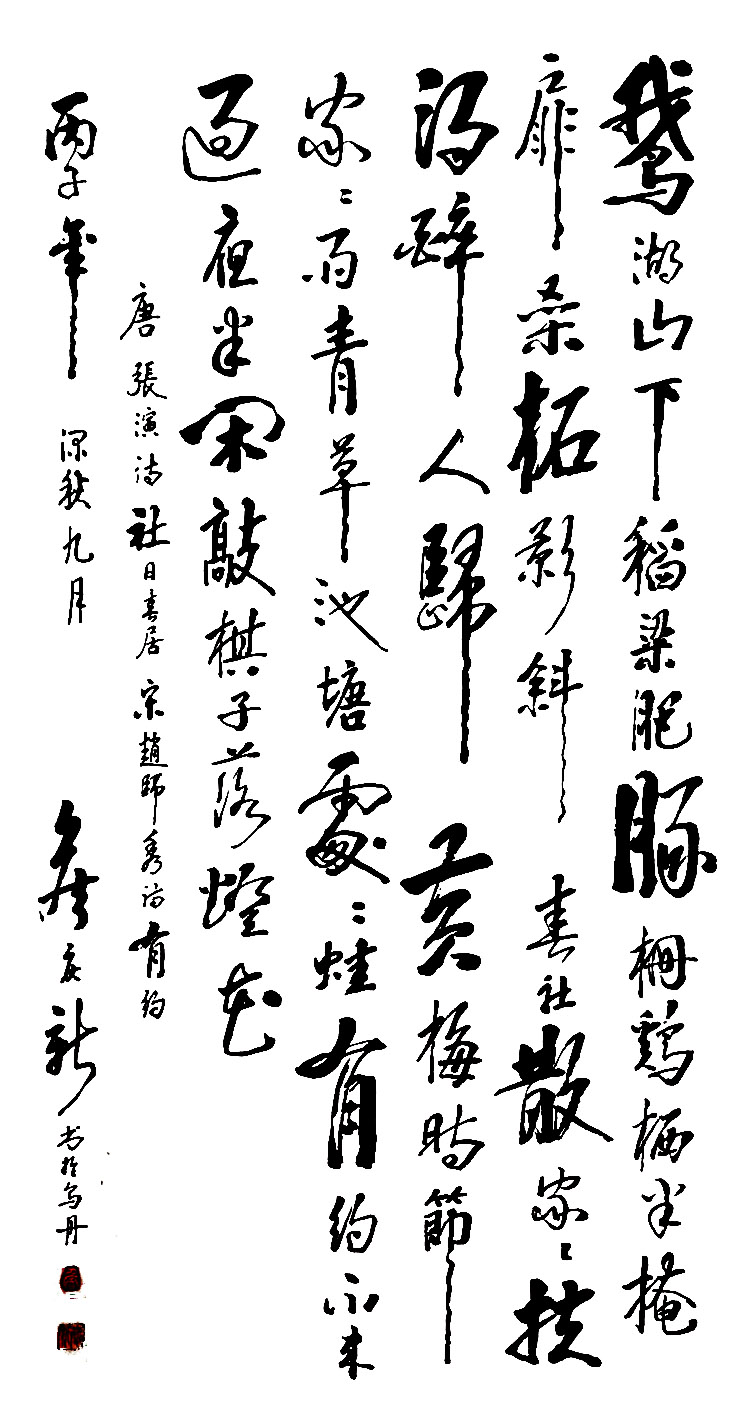 鵞湖山下稻梁肥豚栅鷄栖半掩
扉桑柘影斜春社散家〻扶
得醉人歸黄梅時節
家〻雨青草池塘處〻蛙有约不来
過夜半閑敲棋子落燈花
唐張演诗社日春居宋趙師秀诗有约
丙子年深秋九月 新书於乌丹